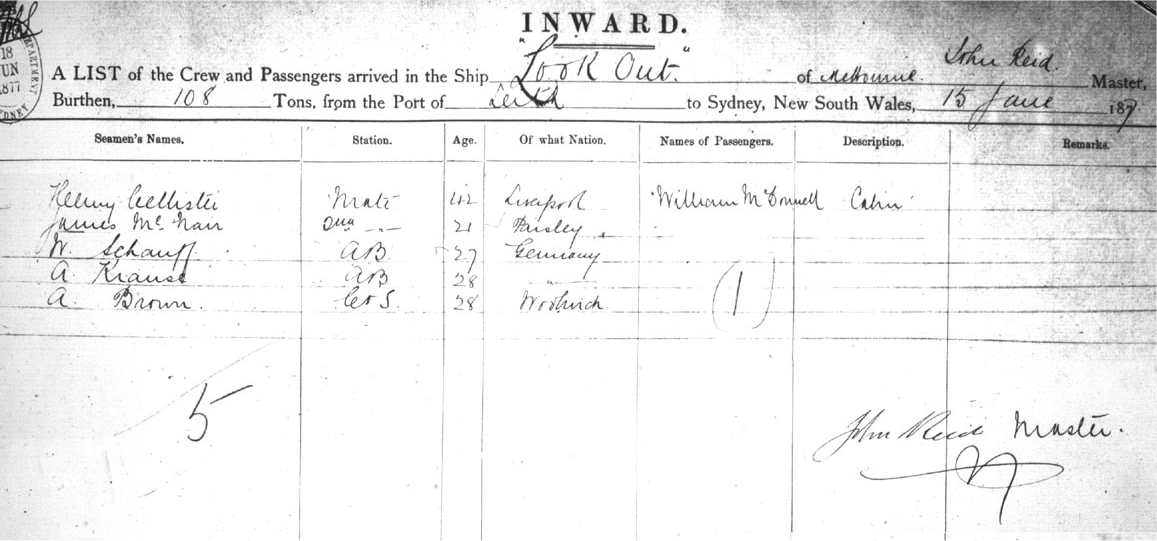 18
JUN
1877
DEPARTMENT
SYDNEY
INWARD.
A LIST of the Crew and Passengers arrived in the Ship "Look Out." of Melbourne. John Reid. Master,
Burthen, 108 Tons, from the Port of Leith to Sydney, New South Wales, 15 June 1877.
Seamen's Names. Station. Age. Of what Nation. Names of Passengers. Description. Remarks.
Henry Mate 42 Liverpool William McDonnell Cabin
James Mc Nair 21 Paisley
W. Schauff. AB 27 Germany
A. Krause AB 28 "
A. Brown. C & S. 28 Woolwich
(1)
5
John Reid Master.